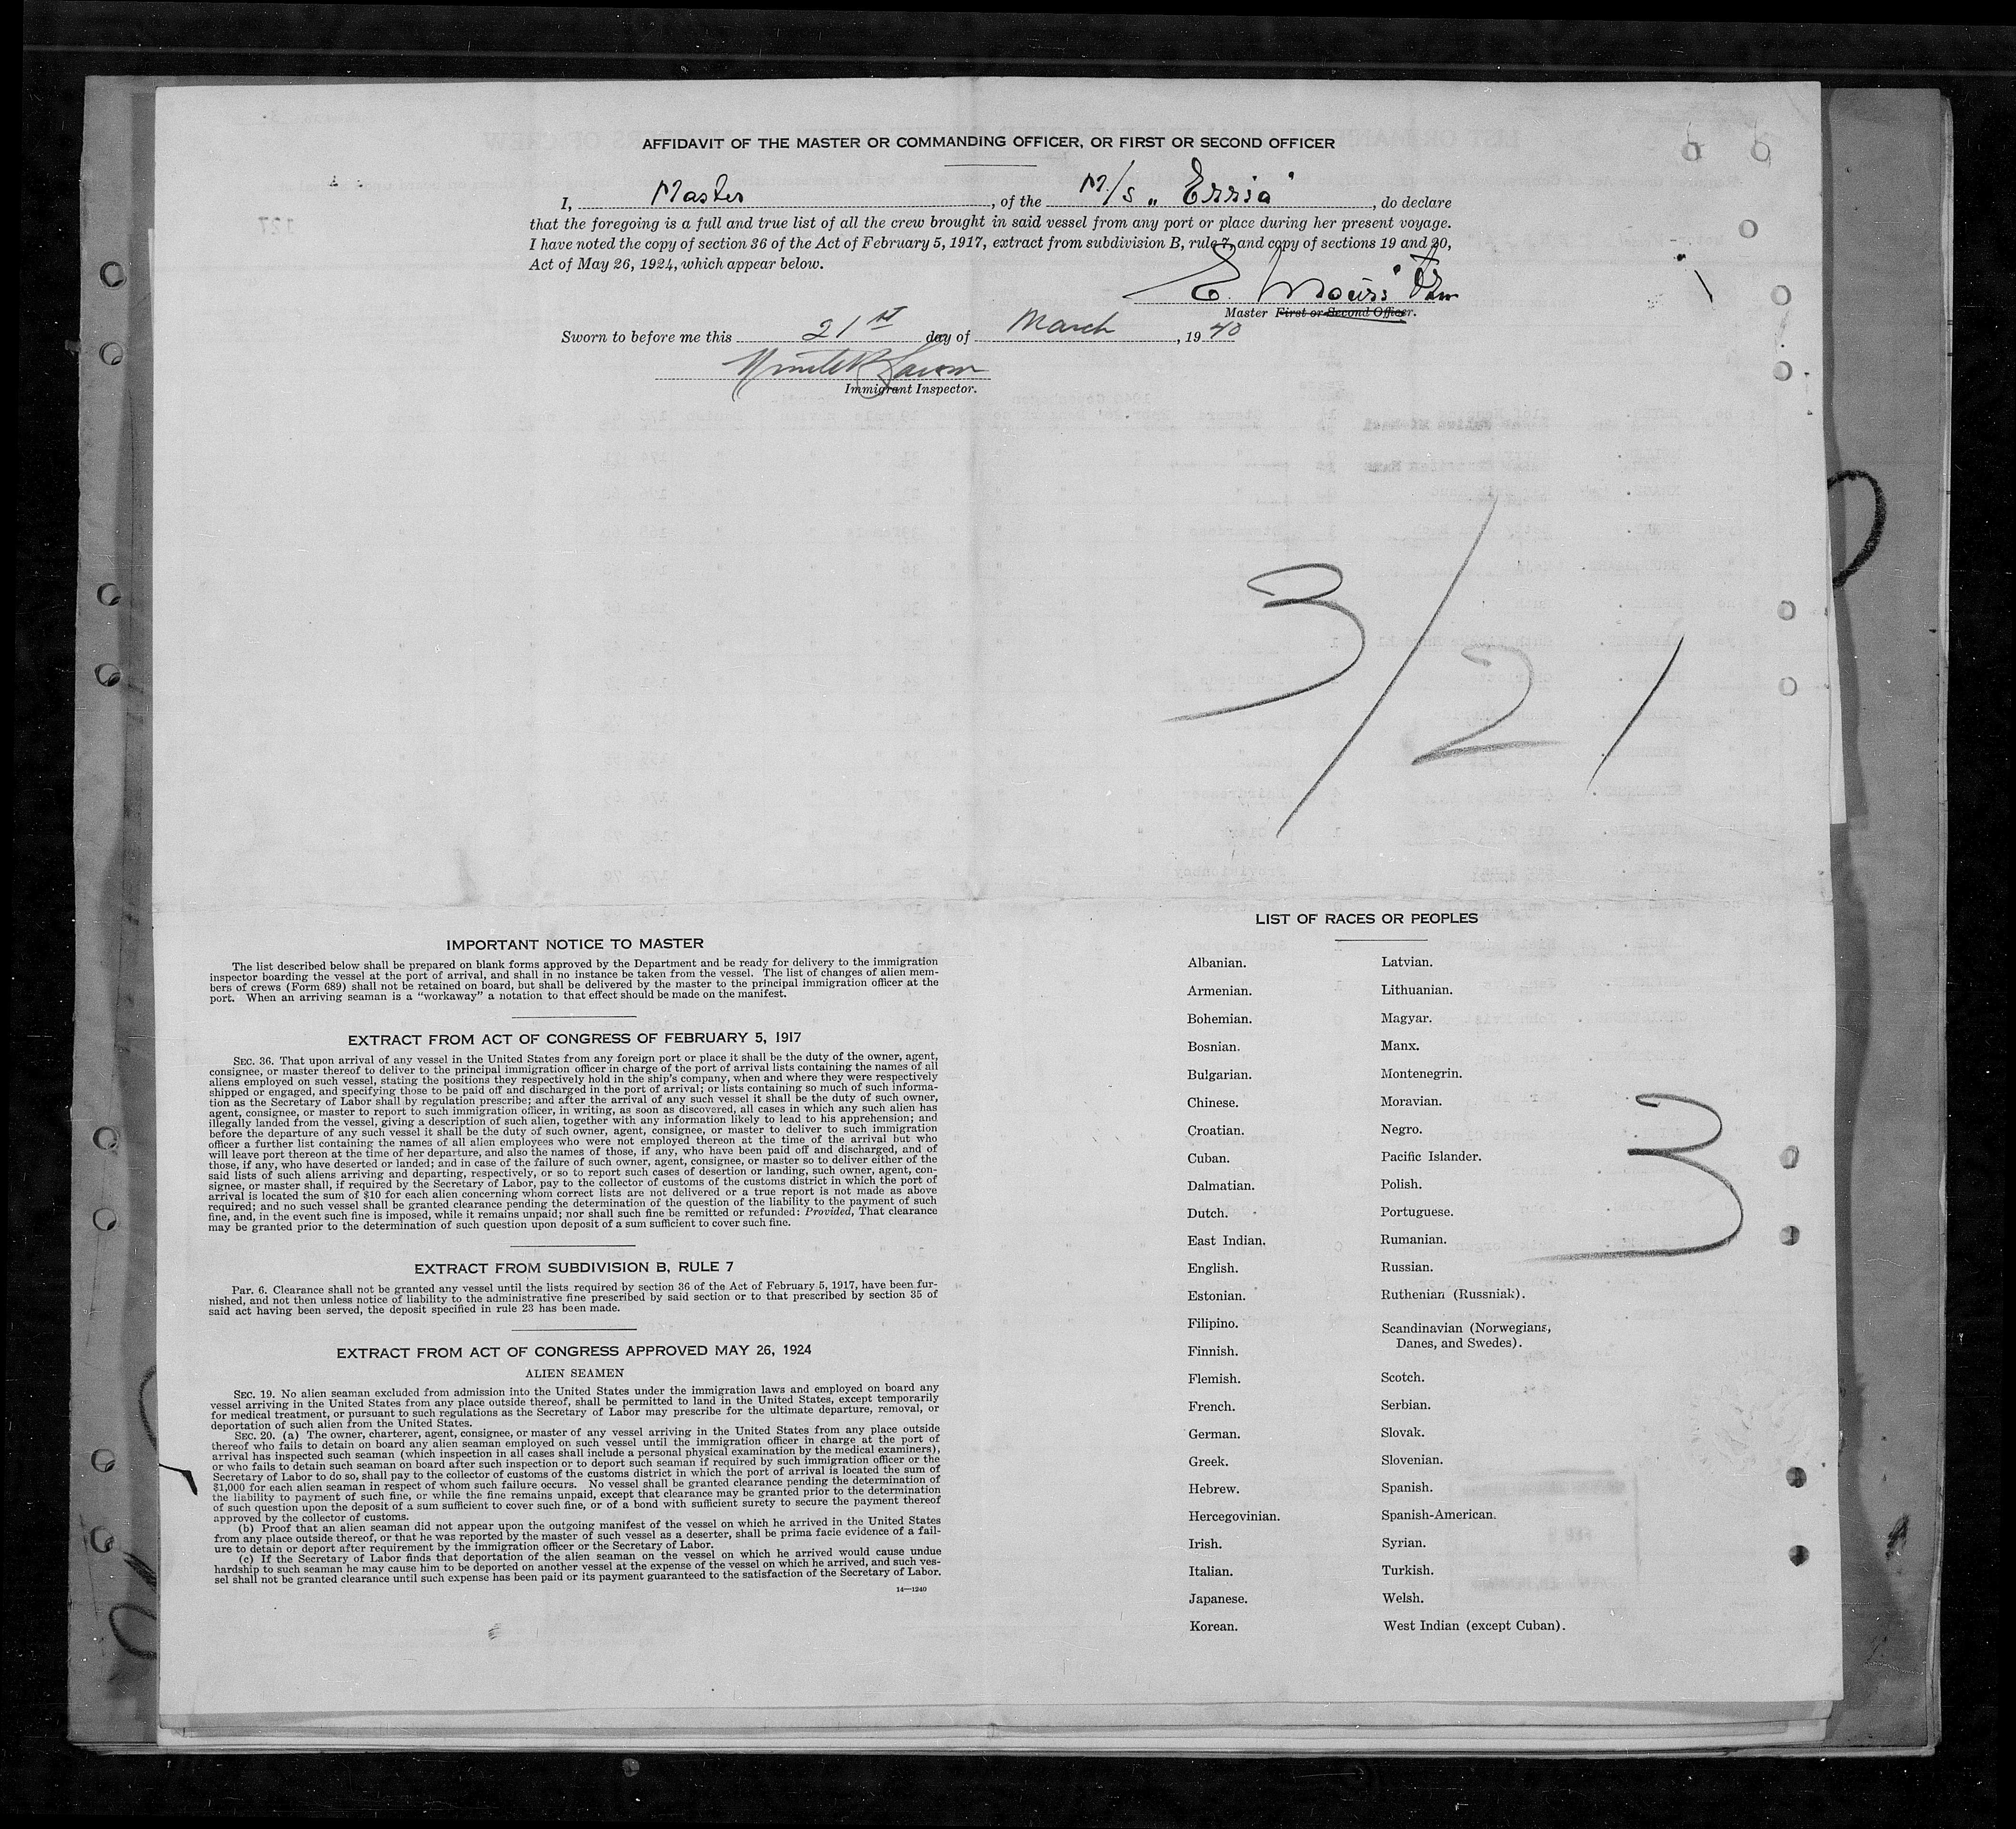 AFFIDAVIT OF THE MASTER OR COMMANDING OFFICER, OR FIRST OR SECOND OFFICER
I, Master, of the M/S „ Erria", do declare
that the foregoing is a full and true list of all the crew brought in said vessel from any port or place during her present voyage.
I have noted the copy of section 36 of the Act of February 5, 1917, extract from subdivision B, rule 7, and copy of sections 19 and 20,
Act of May 26, 1924, which appear below.
E.
Master First or Second Officer.
Sworn to before me this 21st day of March, 1940
Immigrant Inspector.
3/21
IMPORTANT NOTICE TO MASTER
The list described below shall be prepared on blank forms approved by the Department and be ready for delivery to the immigration
inspector boarding the vessel at the port of arrival, and shall in no instance be taken from the vessel. The list of changes of alien mem-
bers of crews (Form 689) shall not be retained on board, but shall be delivered by the master to the principal immigration officer at the
port. When an arriving seaman is a "workaway" a notation to that effect should be made on the manifest.
EXTRACT FROM ACT OF CONGRESS OF FEBRUARY 5, 1917
SEC. 36. That upon arrival of any vessel in the United States from any foreign port or place it shall be the duty of the owner, agent,
consignee, or master thereof to deliver to the principal immigration officer in charge of the port of arrival lists containing the names of all
aliens employed on such vessel, stating the positions they respectively hold in the ship's company, when and where they were respectively
shipped or engaged, and specifying those to be paid off and discharged in the port of arrival; or lists containing so much of such informa-
tion as the Secretary of Labor shall by regulation prescribe; and after the arrival of any such vessel it shall be the duty of such owner,
agent, consignee, or master to report to such immigration officer, in writing, as soon as discovered, all cases in which any such alien has
illegally landed from the vessel, giving a description of such alien, together with any information likely to lead to his apprehension; and
before the departure of any such vessel it shall be the duty of such owner, agent, consignee, or master to deliver to such immigration
officer a further list containing the names of all alien employees who were not employed thereon at the time of the arrival but who
will leave port thereon at the time of her departure, and also the names of those, if any, who have been paid off and discharged, and of
those, if any, who have deserted or landed; and in case of the failure of such owner, agent, consignee, or master so to deliver either of the
said lists of such aliens arriving and departing, respectively, or so to report such cases of desertion or landing, such owner, agent, con-
signee, or master shall, if required by the Secretary of Labor, pay to the collector of customs of the customs district in which the port of
arrival is located the sum of $10 for each alien concerning whom correct lists are not delivered or a true report is not made as above
required; and no such vessel shall be granted clearance pending the determination of the question of the liability to the payment of such
fine, and, in the event such fine is imposed, while it remains unpaid; nor shall such fine be remitted or refunded: Provided, That clearance
may be granted prior to the determination of such question upon deposit of a sum sufficient to cover such fine.
EXTRACT FROM SUBDIVISION B, RULE 7
Par. 6. Clearance shall not be granted any vessel until the lists required by section 36 of the Act of February 5, 1917, have been fur-
nished, and not then unless notice of liability to the administrative fine prescribed by said section or to that prescribed by section 35 of
said act having been served, the deposit specified in rule 23 has been made.
EXTRACT FROM ACT OF CONGRESS APPROVED MAY 26, 1924
ALIEN SEAMEN
SEC. 19. No alien seaman excluded from admission into the United States under the immigration laws and employed on board any
vessel arriving in the United States from any place outside thereof, shall be permitted to land in the United States, except temporarily
for medical treatment, or pursuant to such regulations as the Secretary of Labor may prescribe for the ultimate departure, removal, or
deportation of such alien from the United States.
SEC. 20. (a) The owner, charterer, agent, consignee, or master of any vessel arriving in the United States from any place outside
thereof who fails to detain on board any alien seaman employed on such vessel until the immigration officer in charge at the port of
arrival has inspected such seaman (which inspection in all cases shall include a personal physical examination by the medical examiners),
or who fails to detain such seaman on board after such inspection or to deport such seaman if required by such immigration officer or the
Secretary of Labor to do so, shall pay to the collector of customs of the customs district in which the port of arrival is located the sum of
$1,000 for each alien seaman in respect of whom such failure occurs. No vessel shall be granted clearance pending the determination of
the liability to payment of such fine, or while the fine remains unpaid, except that clearance may be granted prior to the determination
of such question upon the deposit of a sum sufficient to cover such fine, or of a bond with sufficient surety to secure the payment thereof
approved by the collector of customs.
(b) Proof that an alien seaman did not appear upon the outgoing manifest of the vessel on which he arrived in the United States
from any place outside thereof, or that he was reported by the master of such vessel as a deserter, shall be prima facie evidence of a fail-
ure to detain or deport after requirement by the immigration officer or the Secretary of Labor.
(c) If the Secretary of Labor finds that deportation of the alien seaman on the vessel on which he arrived would cause undue
hardship to such seaman he may cause him to be deported on another vessel at the expense of the vessel on which he arrived, and such ves-
sel shall not be granted clearance until such expense has been paid or its payment guaranteed to the satisfaction of the Secretary of Labor.
14—1240
LIST OF RACES OR PEOPLES
Albanian.
Armenian.
Bohemian.
Bosnian.
Bulgarian.
Chinese.
Croatian.
Cuban.
Dalmatian.
Dutch.
East Indian.
English.
Estonian.
Filipino.
Finnish.
Flemish.
French.
German.
Greek.
Hebrew.
Hercegovinian.
Irish.
Italian.
Japanese.
Korean.
Latvian.
Lithuanian.
Magyar.
Manx.
Montenegrin.
Moravian.
Negro.
Pacific Islander.
Polish.
Portuguese.
Rumanian.
Russian.
Ruthenian (Russniak).
Scandinavian (Norwegians,
Danes, and Swedes).
Scotch.
Serbian.
Slovak.
Slovenian.
Spanish.
Spanish-American.
Syrian.
Turkish.
Welsh.
West Indian (except Cuban).
3